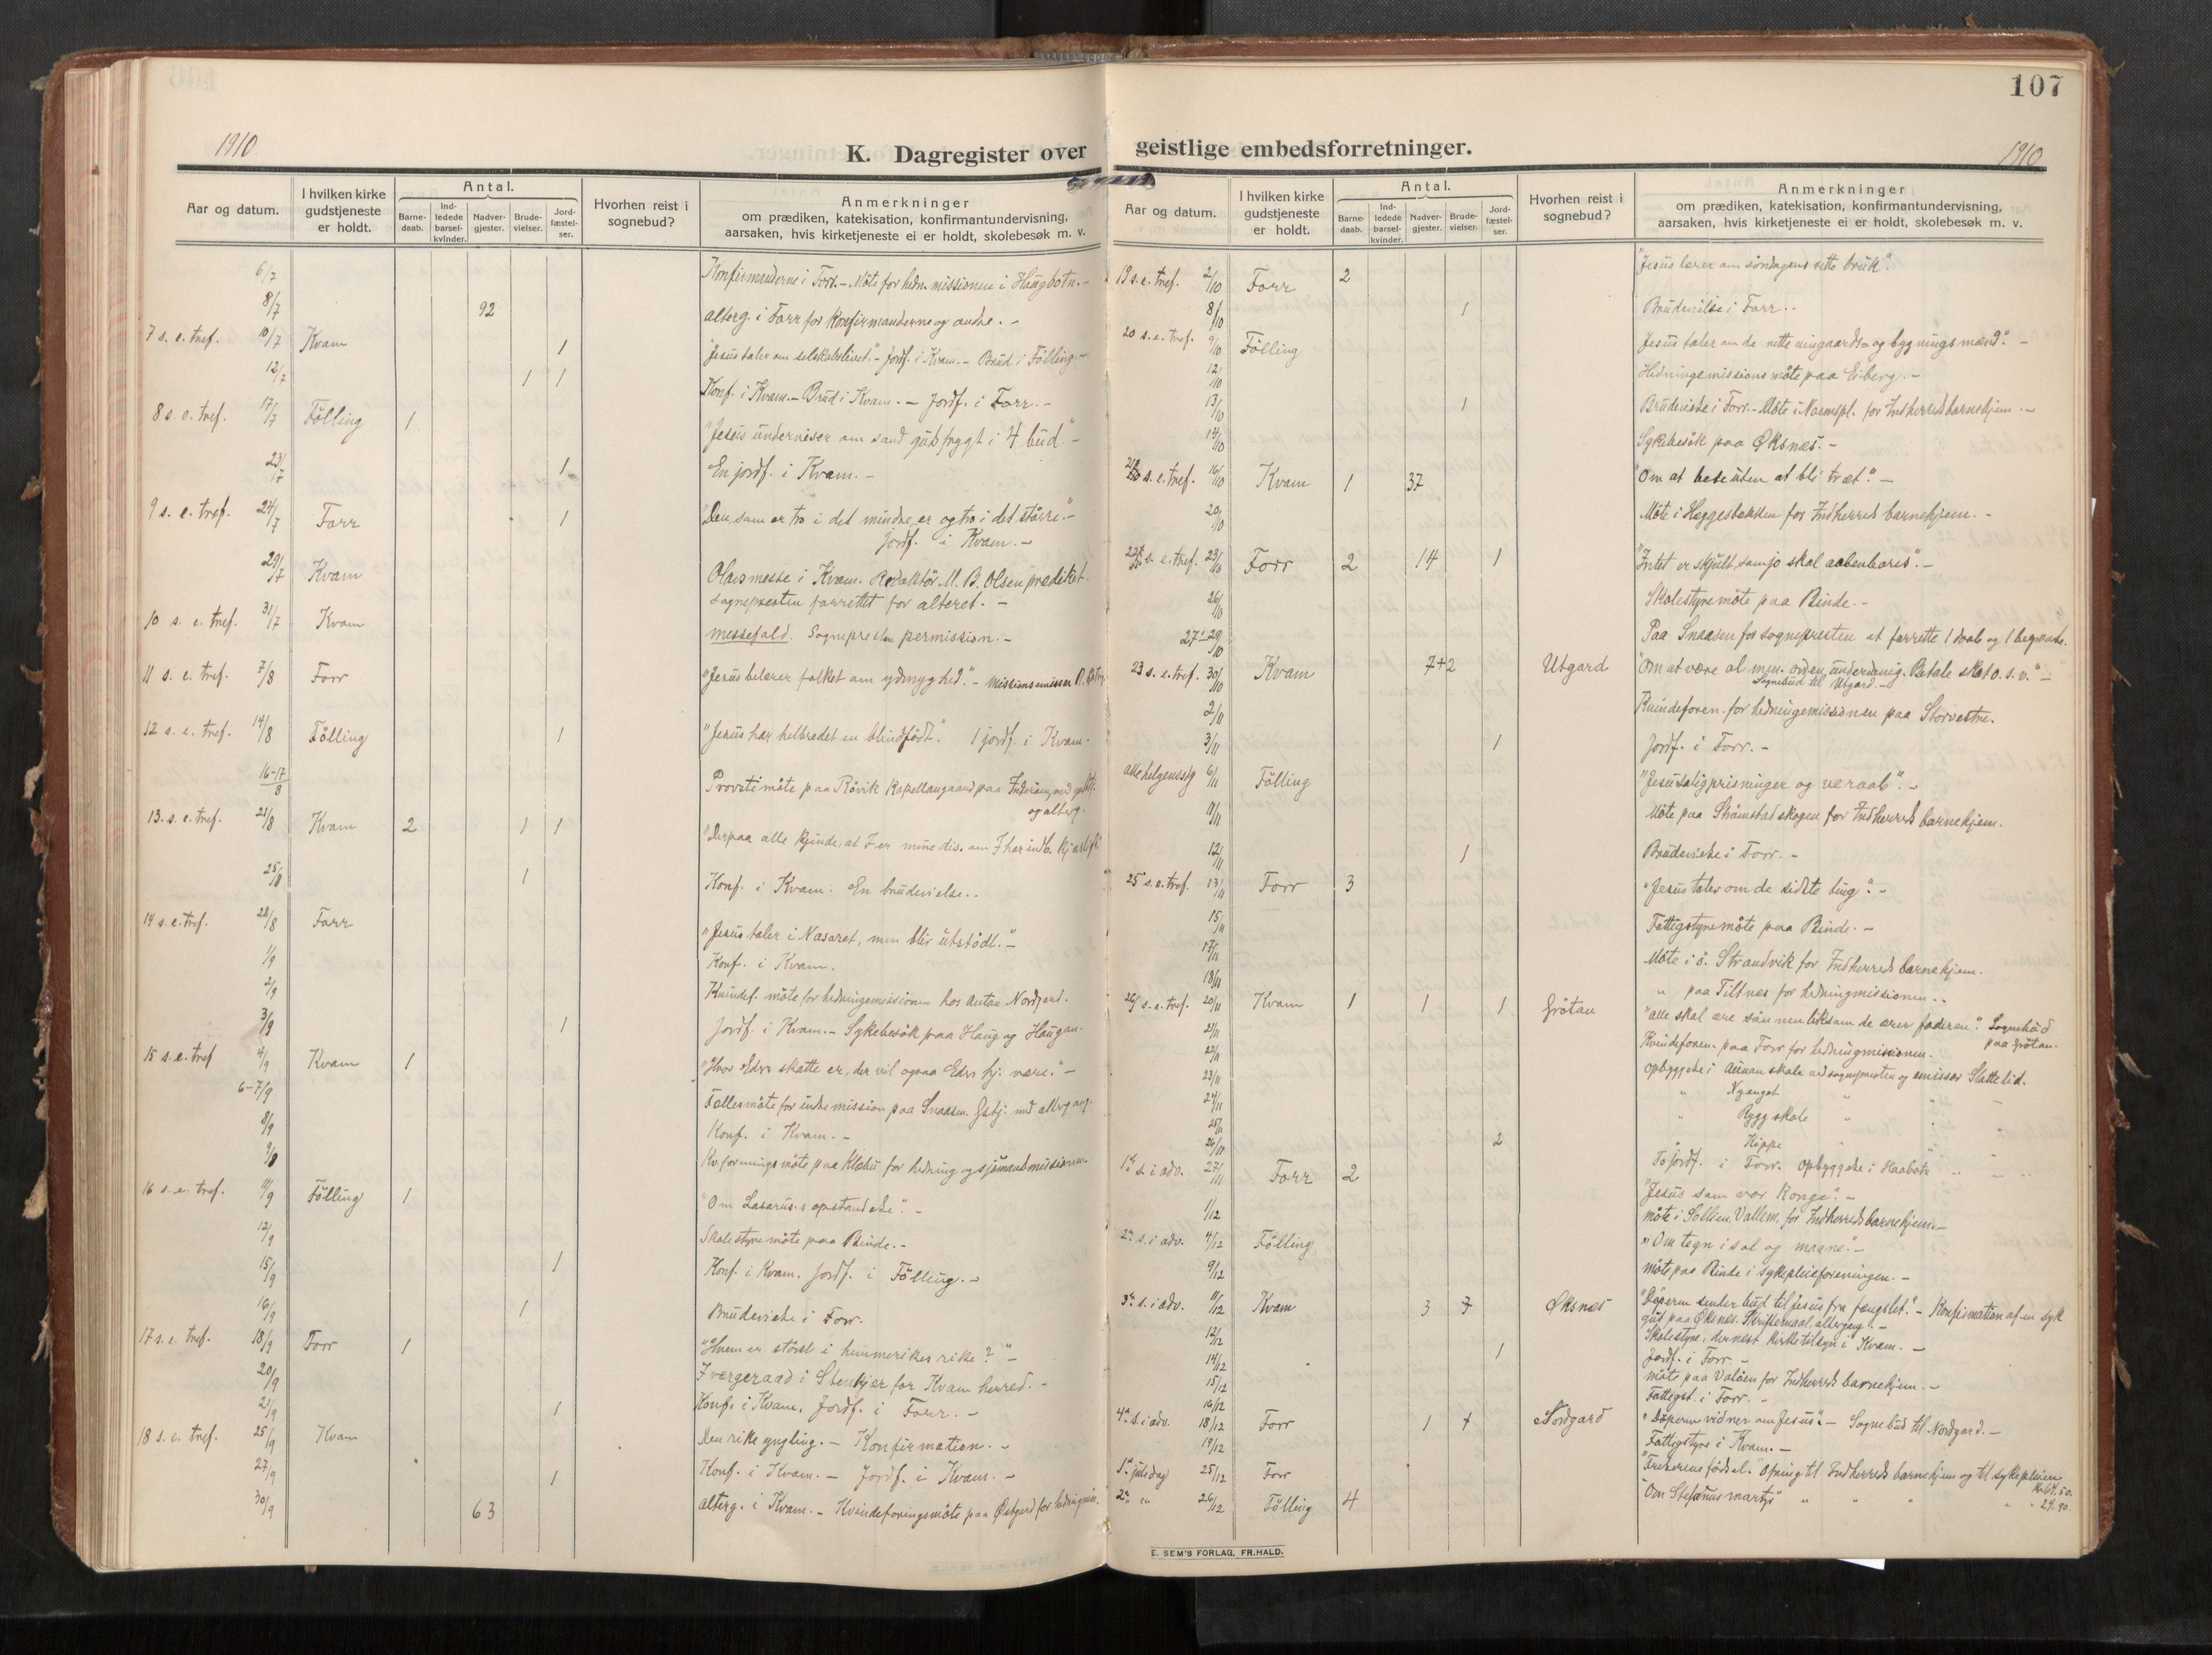 1910
K. Dagregister over
Aar og datum.
I hvilken kirke gudstjeneste er holdt.
Antal.
Barne-daab.
Ind-ledede barsel-kvinder.
Nadver-gjester.
Brude-vielser.
Jord-fæstel-ser.
Hvorhen reist i sognebud?
Anmerkninger
om prædiken, katekisation, konfirmantundervisning,
aarsaken, hvis kirketjeneste ei er holdt, skolebesøk m. v.
6/7 Konfirmanderne i Forr. – Möte for hedn. missionen i Haugbotn. –
8/7 92 Alterg. i Forr for konfirmanderne og andre. –
7 s. e. tref. 10/7 Kvam 1 "Jesus taler om selskabslivet." – Jordf. i Kvam. – Brud i Fölling. –
12/7 1 1 Konf. i Kvam. – Brud i Kvam. – Jordf. i Forr. –
8 s. e. tref. 17/7 Fölling 1 "Jesus underviser om sand gudsfrygt i 4 bud." –
23/7 1 En jordf. i Kvam. –
9 s. e. tref. 24/7 Forr 1 "Den, som er tro i det mindre, er og tro i det större." –
Jordf. i Kvam. –
29/7 Kvam Olavsmesse i Kvam. Redaktör M. B. Olsen prædiket.
Sognepresten forrettet for alteret. –
10 s. e. tref. 31/7 Kvam Messefald. Sognepresten permission. –
11 s. e. tref. 7/8 Forr "Jesus belærer folket om ydmyghed." – Missionsemissær
12 s. e. tref. 14/8 Fölling 1 "Jesus har helbredet en blindfödt." 1 jordf. i Kvam.
16-17/8 Provstimöte paa Rövik kapellangaard paa Inderöen, med
og alterg.
13. s. e. tref. 21/8 Kvam 2 1 1 "Derpaa alle kjende, at I er mine dis. om I har indb. kjærligh."
25/8 1 Konf. i Kvam. En brudevielse. .
14 s. e. tref. 28/8 Forr "Jesus taler i Nasaret, men blir utstödt." –
1/9 Konf. i Kvam.
2/9 Kvindef. möte for hedningemissionen hos Anton Nordgard.
3/9 1 Jordf. i Kvam. – Sykebesök paa Haug og Haugan.
15 s. e. tref 4/9 Kvam 1 "Hvor Eders skatte er, der vil ogsaa Eders hj. være." –
6-7/9 Fællesmöte for indremission paa Snaasen. Gstj. med altergang.
8/9 Konf. i Kvam. –
9/9 Kv. foreningsmöte paa Klæbu for hedning og sjömandsmissionen.
16 s. e. tref. 11/9 Fölling 1 "Om Lasarus's opstandelse." –
12/9 Skolestyremöte paa Binde. –
15/9 1 Konf. i Kvam. Jordf. i Fölling. –
16/9 1 Brudevielse i Forr.
17 s. e. tref. 18/9 Forr 1 "Hvem er störst i himmerikes rike?" –
20/9 I vergeraad i Stenkjer for Kvam herred. –
21/9 1 Konf. i Kvam. Jordf. i Forr. –
18 s. e. tref. 25/9 Kvam Den rike yngling. – Konfirmation. –
27/9 1 Konf. i Kvam. – Jordf. i Kvam. –
30/9 63 Alterg. i Kvam. – Kvindeforingsmöte paa Östgard for hedningmis.
107
geistlige embedsforretninger.
1910
Aar og datum.
I hvilken kirke gudstjeneste er holdt.
Antal.
Barne-daab.
Ind-ledede barsel-kvinder.
Nadver-gjester.
Brude-vielser.
Jord-fæstel-ser.
Hvorhen reist i sognebud?
Anmerkninger
om prædiken, katekisation, konfirmantundervisning,
aarsaken, hvis kirketjeneste ei er holdt, skolebesøk m. v.
19 s. e. tref. 2/10 Forr 2 "Jesus lærer om söndagens rette bruk."
8/10 1 Brudevielse i Forr. .
20 s. e. tref. 9/10 Fölling Jesus taler om de rette vingaards- og bygningsmænd." –
12/10 Hedningemissionsmöte paa Eiberg. –
13/10 1 Brudevielse i Forr. – Möte i for Indherreds barnehjem. –
14/10 Sykebesök paa Øksnes. –
21 s. e. tref. 16/10 Kvam 1 37 "Om at bede uten at bli træt." –
20/10 Möte i Heggesbakken for Indherreds barnehjem. –
22 s. e. tref. 23/10 Forr 2 14 1 "Intet er skjult, som jo skal aabenbares". –
26/10 Skolestyremöte paa Binde. –
27-29/10 Paa Snaasen for sognepresten at forrette 1 daab og 1 begravelse.
23 s. e. tref. 30/10 Kvam 7+2 Utgard "Om at være al men. orden underdanig. Betale skat o. s. v." –
Sognebud til Utgard –
2/11 Kvindeforen. for hedningemissionen paa Storvestre.
3/11 1 Jordf. i Forr. –
Allehelgenssg 6/11 Fölling "Jesu saligprisninger og veraab". –
11/11 Möte paa Strömstadskogen for Indherreds barnehjem.
12/11 1 Brudevielse i Forr. –
25 s. e. tref. 13/11 Forr 3 "Jesus taler om de sidste ting". –
15/11 Fattigstyremöte paa Binde. –
17/11 Möte i ö. Strandvik for Indherreds barnehjem.
18/11 " paa Tiltnes for hedningmissionen. .
26 s. e. tref. 20/11 Kvam 1 1 1 Grötan "Alle skal ære sönnen liksom de ærer faderen." Sognebud
paa Grötan.
21/11 Kvindeforen. paa Forr for hedningmissionen.
22/11 Opbyggelse i Aunan skole ved sognepresten og emissær Slettelid.
23/11 " "
24/11 " Rygg skole "
25/11 " Kippe
26/11 2 To jordf. i Forr. Opbyggelse i
1ste s. i adv. 27/11 Forr 2 "Jesus som vor konge". –
1/12 Möte i Sollien, Vallem. for Indherreds barnehjem. –
2n. s. i adv. 4/12 Fölling "Om tegn i sol og maane." –
9/12 Möte paa Binde i sykepleieforeningen. –
3n. s. i adv. 11/12 Kvam 3 Øksnes "Döperen sender bud til Jesus fra fængslet." – Konfirmation af en syk
gut paa Øksnes. Skriftemaal, altergang. –
12/12 Skolestyre, dernæst kirketilsyn i Kvam. –
14/12 1 Jordf. i Forr. –
15/12 Möte paa Valöen for Indherreds barnehjem. –
16/12 Fattigst. i Forr. –
4n. s. i adv. 18/12 Forr 1 Nordgard "Döperen vidner om Jesus". – Sognebud til Nordgard. –
19/12 Fattigstyre i Kvam. –
1ste juledag 25/12 Forr "Frelserens födsel." Ofring til Indherreds barnehjem og til sykepleien
Kr 64.50.
2n. " 26/12 Fölling 4 "Om Stefanus martyr" " " " " 24.90.
E. SEM'S FORLAG, FR.HALD.